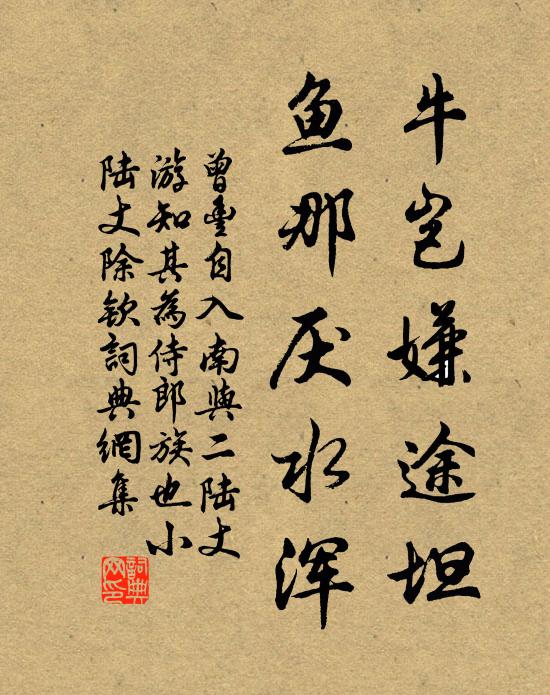 牛岂嫌途坦
鱼那厌水浑
曾丰自入南与二陆丈
游知其为侍郎族也小
陆丈除钦词典網集
詞典網印